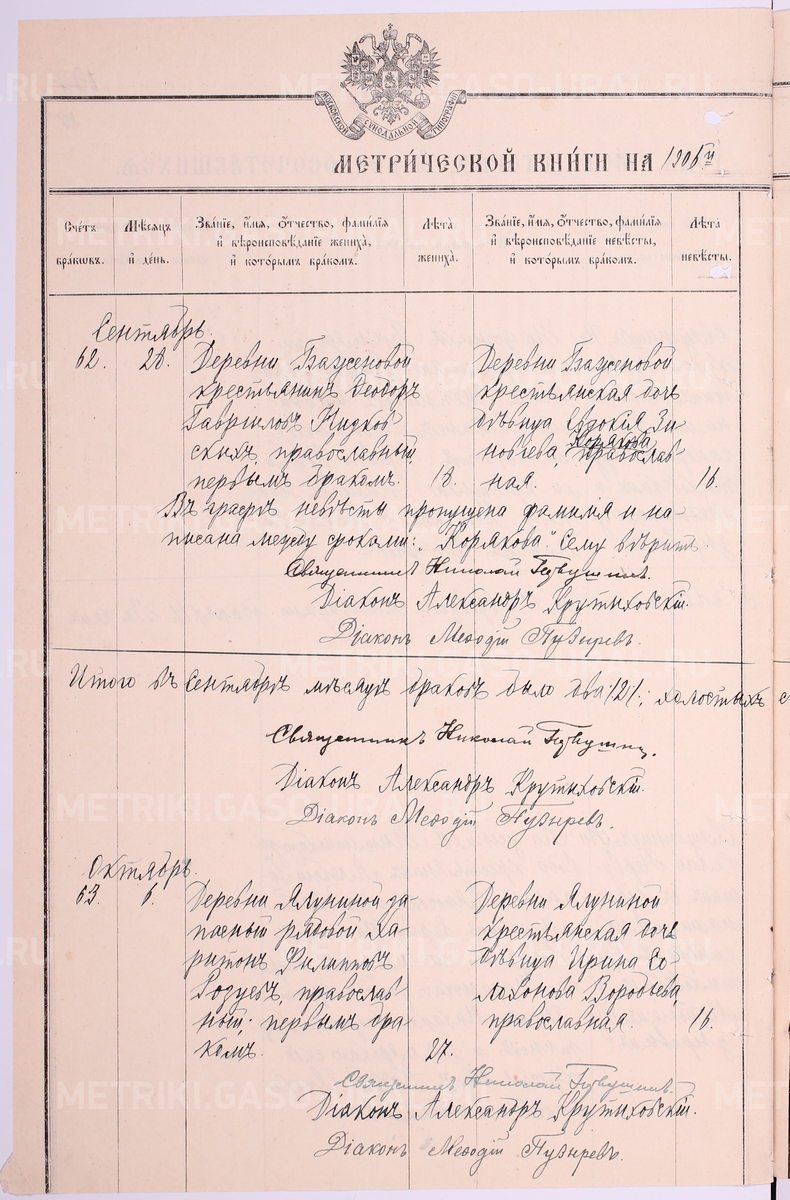 МОСКОВСКОЙ СѴНОДАЛЬНОЙ ТИПОГРАФІИ
МЕТРИ́ЧЕСКОЙ КНИ́ГИ НА 190 г.
Сче́тъ бра́ковъ.
Мѣ́сяцъ и́ де́нь.
Зва́нїе, и́мя, ѻ́тчество, фами́лїя и҆ вѣроисповѣ́данїе жениха̀, и҆ кото́рымъ бра́комъ.
Лѣ́та жениха̀.
Зва́нїе, и́мя, ѻ́тчество, фами́лїя и҆ вѣроисповѣ́данїе невѣ́сты, и҆ кото́рымъ бра́комъ.
Лѣ́та невѣ́сты.
Сентябрь.
62.
28.
Деревни Баженовой
крестьянинъ Ѳеодоръ
Гавриловъ Нидков-
скихъ, православный,
первымъ бракомъ.
18.
Деревни Баженовой
крестьянская дочь
дѣвица Евдокія Зи-
новіева, Корякова, православ-
ная.
16.
Въ графѣ невѣсты пропущена фамилія и на-
писана между строками: „Корякова". Сему вѣрить
Священникъ Николай
Діаконъ Александръ Крутиховскій.
Діаконъ Меѳодій Пузыревъ.
Итого въ Сентябрѣ мѣсяцѣ браковъ было два /2/; холостыхъ с
Священникъ Николай
Діаконъ Александръ Крутиховскій.
Діаконъ Меѳодій Пузыревъ.
Октябрь.
63.
6.
Деревни Ялуниной за-
пасный рядовой Ха-
ритонъ Филипповъ
православ-
ный; первымъ бра-
комъ.
27.
Деревни Ялуниной
крестьянская дочь
дѣвица Ирина Со-
ломонова Воробьева,
православная.
16.
Священникъ Николай
Діаконъ Александръ Крутиховскій.
Діаконъ Меѳодій Пузыревъ.
METRIKI.GASO-URAL.RU